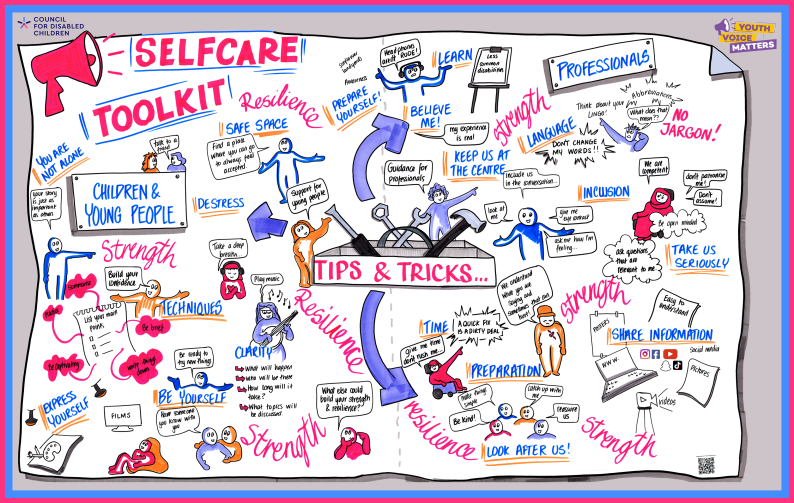 COUNCIL
FOR DISABLED
CHILDREN
YOUTH
VOICE
MATTERS
SELFCARE
TOOLKIT
Resilience
YOU ARE
NOT ALONE
Talk to a
friend
SAFE SPACE
Find a place
where you can go
to always feel
accepted.
CHILDREN &
YOUNG PEOPLE
Your story
is just as
important
as others
DESTRESS
Support for
young people
Strength
Take a deep
breath...
Build your
confidence
TECHNIQUES
Summarise
List your main
points
Be brief
Be captivating
write things
down
Play music
CLARITY
What will happen
Who will be there
How long will it
take?
What topics will
be discussed
Be ready to
try new things
BE YOURSELF
EXPRESS
YOURSELF
FILMS
Have someone
you know with
you
Strength
Resilience
What else could
build your strength
& resilience?
TIPS & TRICKS...
Guidance for
professionals
PREPARE
YOURSELF!
Awareness
Headphones
aren't RUDE!
LEARN
Less
common
disabilities
PROFESSIONALS
BELIEVE
ME!
my experience
is real
strength
KEEP US AT
THE CENTRE
LANGUAGE
Think about your
LINGO!
Abbreviations
What does that
mean??
NO
JARGON!
DON'T CHANGE
MY WORDS!!
include us
in the conversation...
INCLUSION
look at
me
Give me
eye contact
ask me how I'm
feeling...
We are
competent
don't patronise
me!
Don't
assume!
Be open minded
Ask questions
that are
relevant to me
TAKE US
SERIOUSLY
We understand
what you are
saying and
sometimes that can
hurt!
strength
TIME
A QUICK FIX
IS A DIRTY DEAL
Give me time
don't rush me...
PREPARATION
Easy to
understand
POSTERS
SHARE INFORMATION
WWW.
Social media
Pictures
videos
resilience
make things
simple
catch up with
me
Be kind!
reassure
us
LOOK AFTER US!
Strength